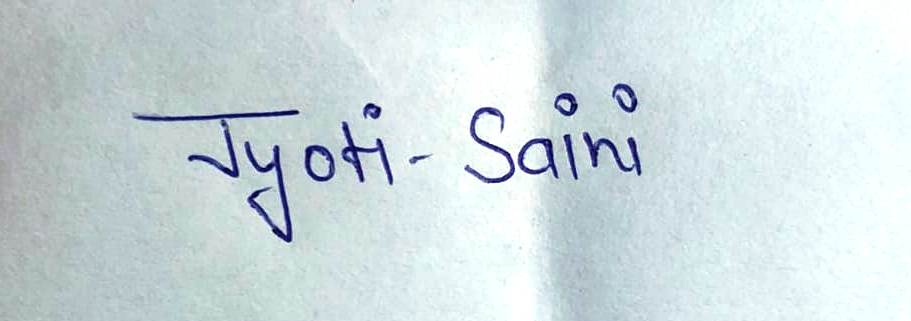 Jyoti - Saini